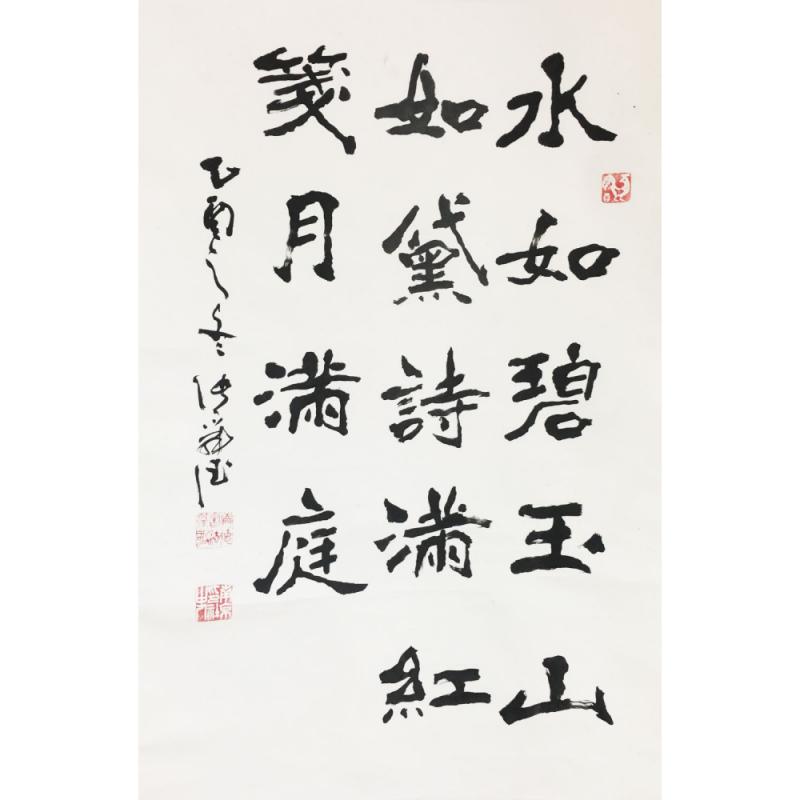 水如碧玉山
如黛詩满紅
箋月满庭
乙酉之冬